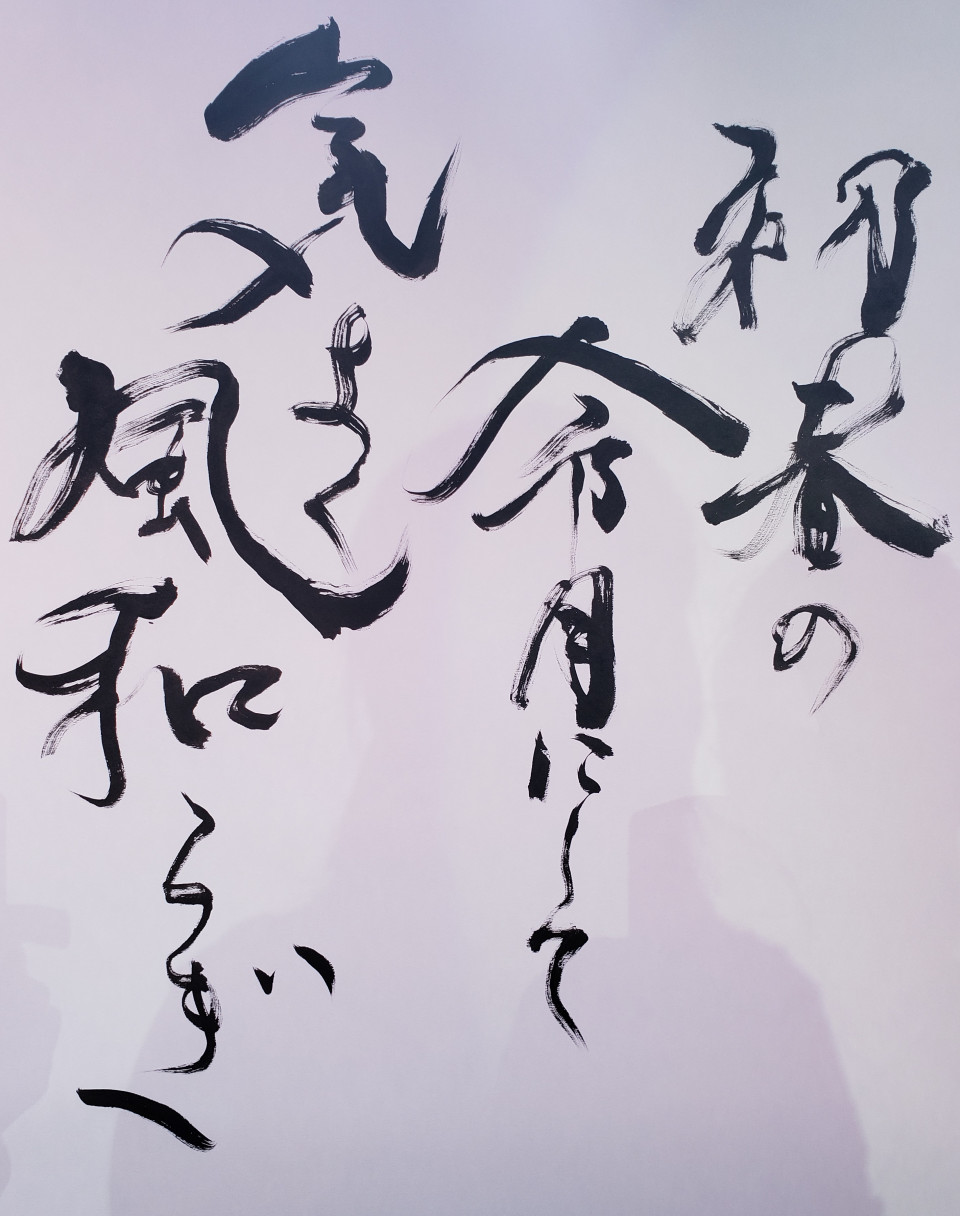 初春の
令月にして
気よく風和らぎ